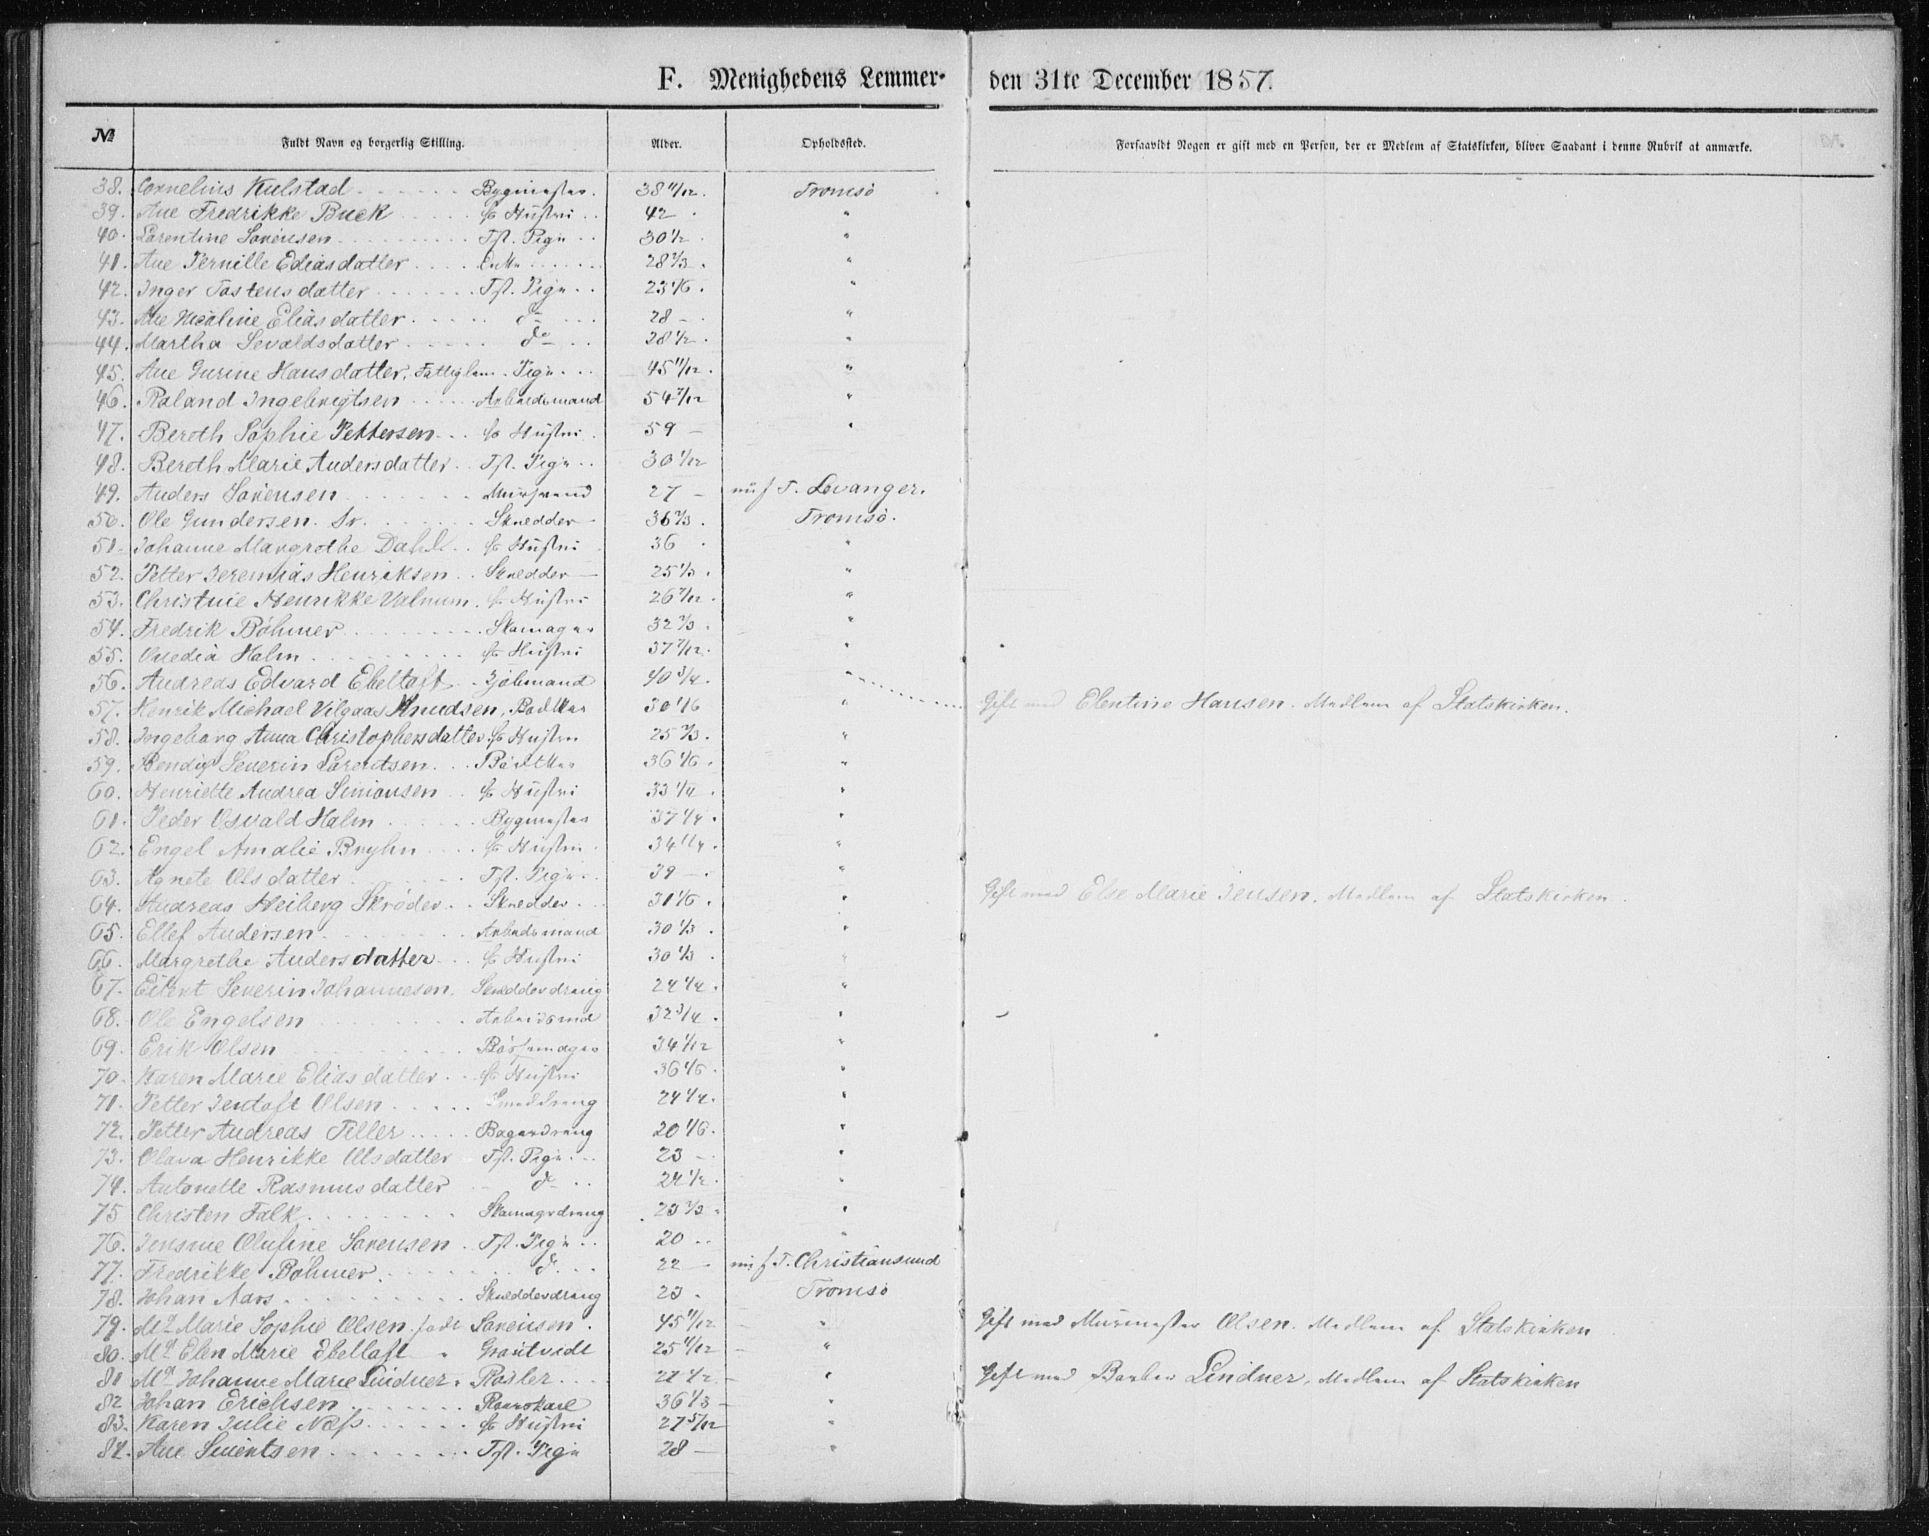 F. Menighedens Lemmer den 31te December 1857.
№ Fuldt Navn og borgerlig Stilling. Alder. Opholdssted. Forsaavidt Nogen er gift med en Person, der er Medlem af Statskirken, bliver Saadant i denne Rubrik at anmærke.
38. Cornelius Kulstad Bygmester. 38 11/12. Tromsö
39. Ane Fredrikke Buck Hustru 42 "
40. Larentine Sörensen Tjst. Pige 30 1/2 "
41. Ane Pernille Ediasdatter Enke 28 2/3. "
42. Inger Tostensdatter Tjst. Pige 23 1/6. "
43. Ane Nicoline Eliasdatter do 28 – "
44. Martha Sevaldsdatter do 28 1/2. "
45. Ane Gurine Hansdatter, Fattiglem. Pige 45 11/12. "
46. Roland Ingebrigtsen Arbeidsmand 54 7/12 "
47. Beroth Sophie Pettersen Hustru 59 – "
48. Beroth Marie Andersdatter Tjst. Pige 30 1/12 "
49. Anders Sörensen Muursvend 27 – T. Levanger.
50. Ole Gundersen. Sr. Skrædder 36 2/3. Tromsö.
51. Johanne Margrethe Dahl Hustru 36 "
52. Petter Jeremias Henriksen Skrædder 25 1/3. "
53. Christine Henrikke Valnum Hustru 26 7/12. "
54. Fredrik Böhmer Skomager 32 2/3. "
55. Holm Hustru 37 7/12. "
56. Andreas Edvard Ebeltoft 40 3/4. "
57. Henrik Michael Knudsen, Bødtker 30 1/6 " Gift med Elentine Hansen. Medlem af Statskirken.
58. Ingeborg Anna Christophersdatter Hustru 25 2/3. "
59. Severin Lorentsen Bödtker 36 1/6. "
60. Henriette Andrea Simonsen Hustru 33 1/4 "
61. Peder Osvald Holm Bygmester 37 1/4. "
62. Engel Amalie Bryhn Hustru 34 1/4. "
63. Agnete Olsdatter Tjst. Pige 39 – "
64. Andreas Heiberg Skröder Skredder 31 1/6. " Gift med Else Marie Jensen. Medlem af Statskirken.
65. Ellef Andersen Arbeidsmand 30 1/3. "
66. Margrethe Andersdatter Hustru 30 1/3. "
67. Eilert Severin Johannesen Skredderdreng 24 1/4. "
68. Ole Engelsen 32 3/4. "
69. Erik Olsen Bössemager 34 1/12 "
70. Karen Marie Eliasdatter Hustru 36 1/6. "
71. Petter Jentoft Olsen Smeddreng 24 1/4. "
72. Petter Andreas Teller Bagerdreng 20 1/6. "
73. Olava Henrikke Olsdatter Tjst. Pige 23 – "
74. Antonette Rasmusdatter do 24 1/2. "
75 Christen Falk Skomagrdreng 23 2/3. "
76. Olufine Sörensen Tjst. Pige 20 "
77. Fredrikke Böhmer do 22 – T. Christiansund
78. Johan Aars Skredderdreng 23. Tromsö
79. Md Marie Sophie Olsen, født Sörensen. 45 11/12 " Gift med Murmester Olsen. Medlem af Statskirken
80. Md Elen Marie Ebeltoft " Grøntvedt 25 11/12 "
81 Md Johanne Marie Lindner " 27 1/2 " Gift med Barber Lindner, Medlem af Statskirken
82 Johan Erichsen 36 1/3 "
83. Karen Julie Næss Hustru 27 5/12 "
84. Ane Tjst. Pige 28 – "